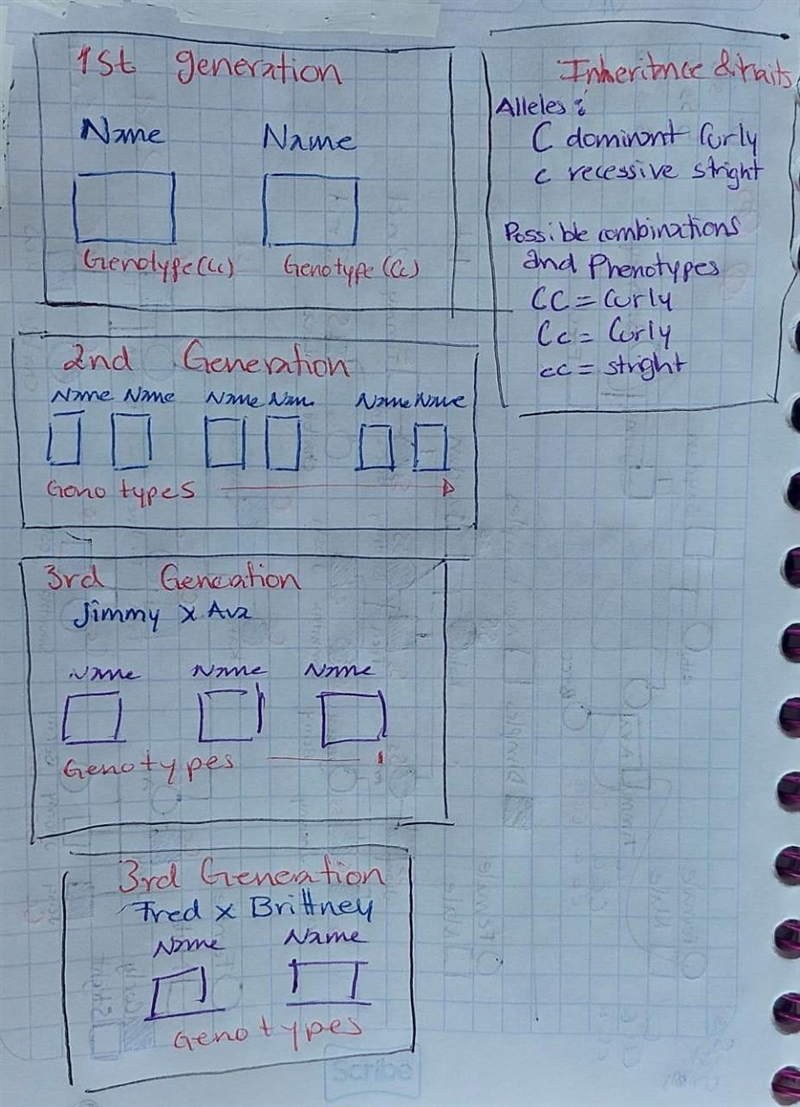 1st generation
Name Name
Genotype (Cc) Genotype (Cc)
Inheritance & traits
Alleles:
C dominant Curly
c recessive stright
Possible combinations
and Phenotypes
CC = Curly
Cc = Curly
cc = stright
2nd Generation
Name Name Name Nam. Name Name
Genotypes
3rd Geneation
Jimmy x Ava
Name Name Name
Genotypes
3rd Geneation
Fred x Brittney
Name Name
Genotypes
Scribe